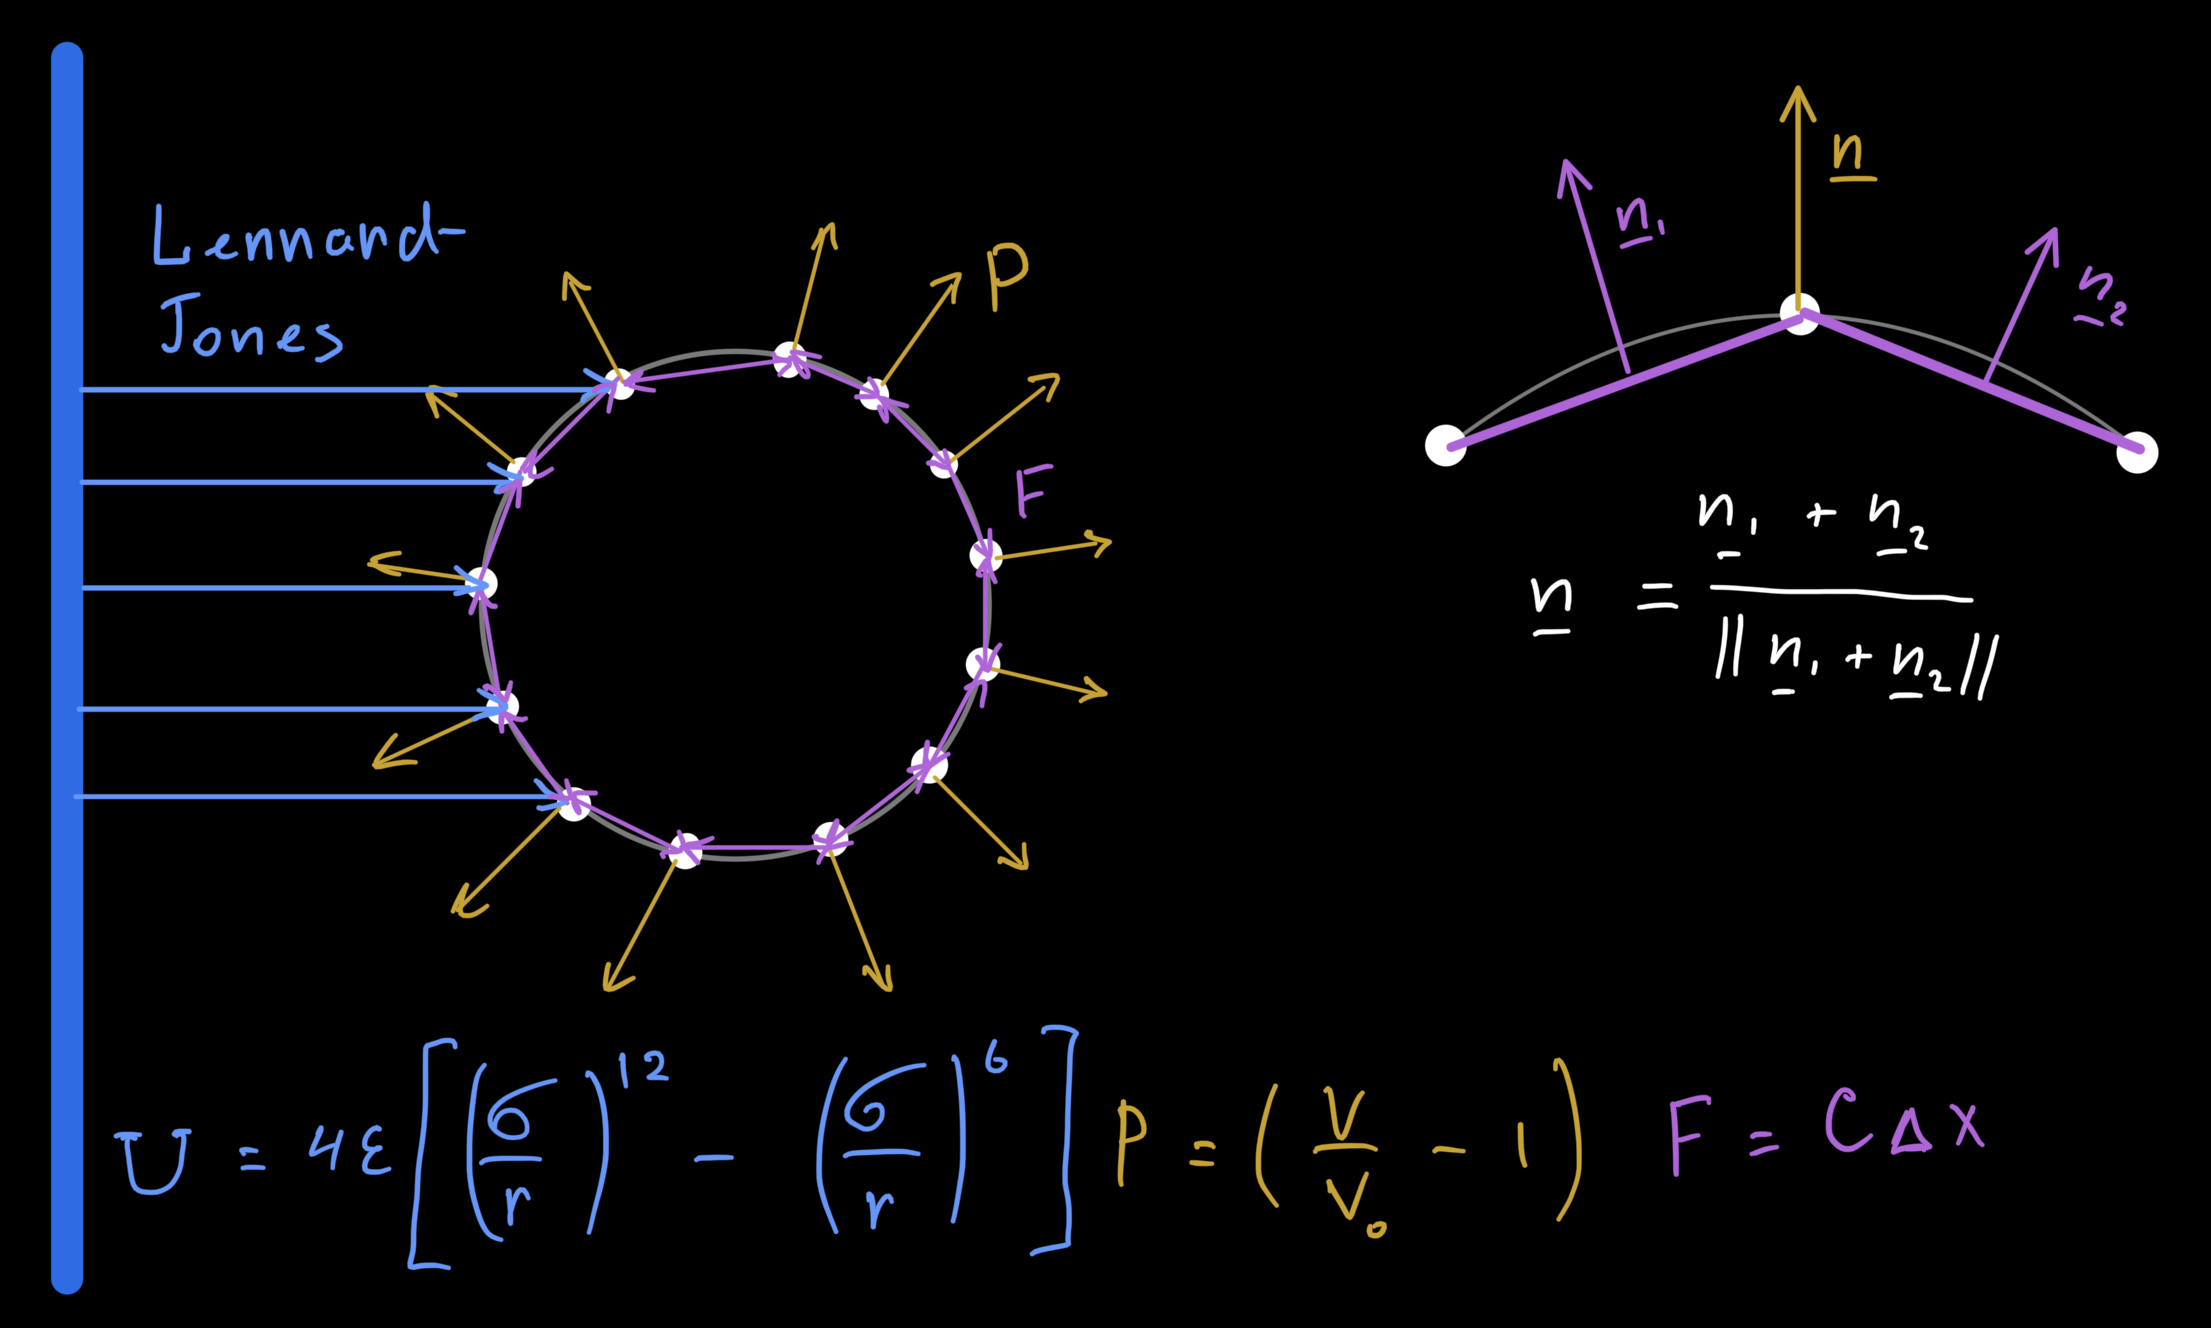 Lennard-
Jones
P
F
n
n₁
n₂
n = (n₁ + n₂) / ||n₁ + n₂||
U = 4ε[(σ/r)¹² - (σ/r)⁶]
P = (V/V₀ - 1)
F = CΔx